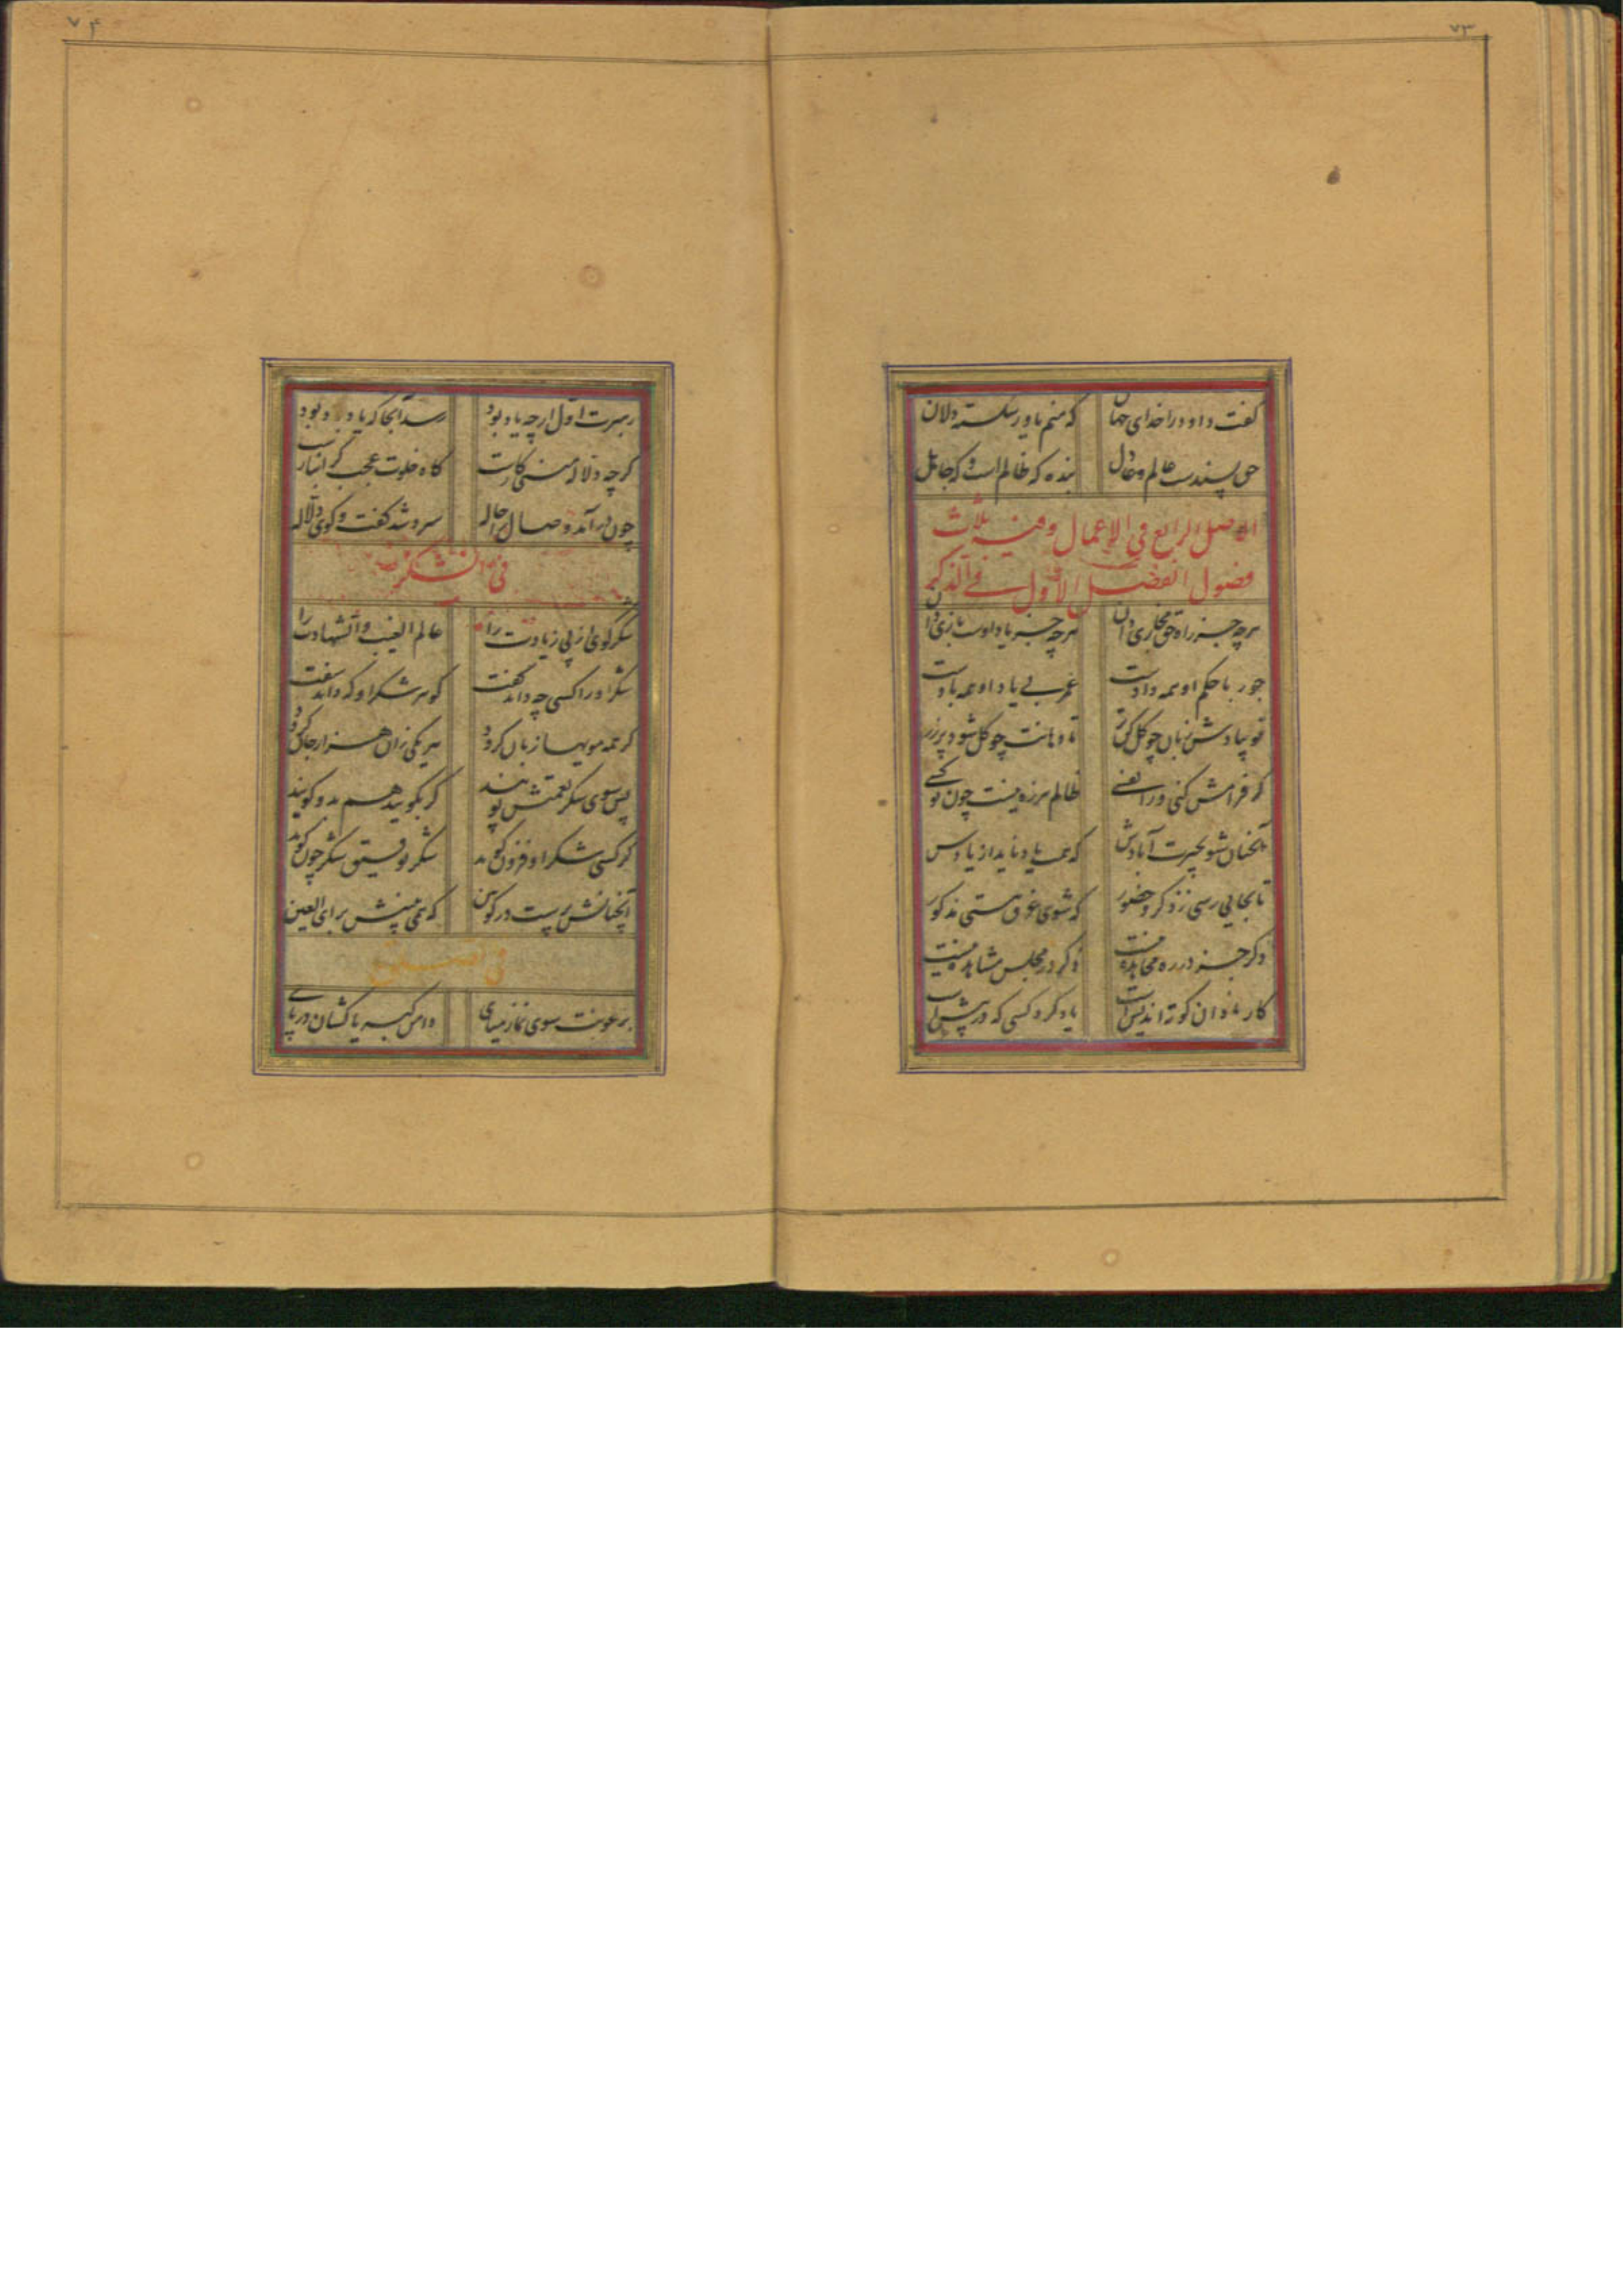 ۷۳
گفت داود را خدای جهان که منم یاور شکسته دلان
حق پسندست عالم و عادل بنده که ظالم است و که جاهل
الاصل الرابع فی الاعمال وفیه ثلاث
فصول الفصل الاول فی الذکر
هرچه جز راه حق مجازی دان هرچه جز یاد اوست بازی دان
جور با حکم او همه دادست عمر بی یاد او همه بادست
تو بیادش زبان چو گل کن تر تا دهانت چو گل شود پر زر
گر فرامش کنی ورا نفسی ظالم هرزه نیست چون تو کسی
آنچنان شو بحیرت آبادش که همه یاد ناید از یادش
تا بجایی رسی ز ذکر و حضور که شوی غرق هستی مذکور
ذکر جز در ره مجاهده نیست ذکر در مجلس مشاهده نیست
کار نادان کوته اندیش است یاد کرد کسی که در پیش است
۷۴
رهبرت اول ارچه یاد بود رسد آنجا که یاد باد بود
گرچه دلاله کاریست گاه خلوت عجب گرانباریست
چون درآمد وصال را حاله سرد شد گفت و گوی دلاله
فی الشکر
شکر گوی از پی زیادت را عالم الغیب و الشهادت را
شکر او را کسی چه داند گفت گوهر شکر او که داند سفت
گر همه مویها زبان گردد هر یکی زان هزار جان گردد
پس سوی شکر نعمتش پویند گر بگویند هم بدو گویند
گر کسی شکر او فزون گوید شکر توفیق شکر چون گوید
آنچنانش پرست در کونین که همی بینیش برای العین
فی
برعونت سوی نماز میای دامن کبریا کشان در پای